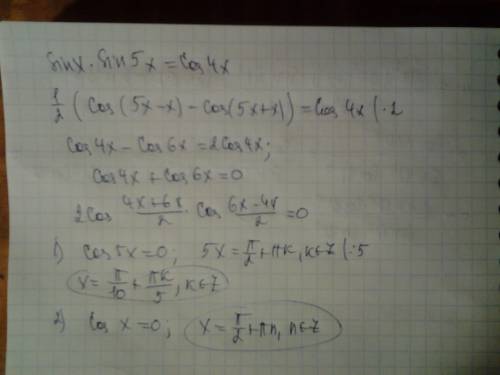 Sinx · Sin5x = Cos4x
1/2 (Cos(5x-x) - cos(5x+x)) = Cos4x | ·2
Cos4x - Cos6x = 2Cos4x;
Cos4x + Cos6x = 0
2Cos (4x+6x)/2 · Cos (6x-4x)/2 = 0
1) Cos5x = 0; 5x = π/2 + πk, k∈Z | :5
x = π/10 + πk/5, k∈Z
2) Cos x = 0; x = π/2 + πn, n∈Z